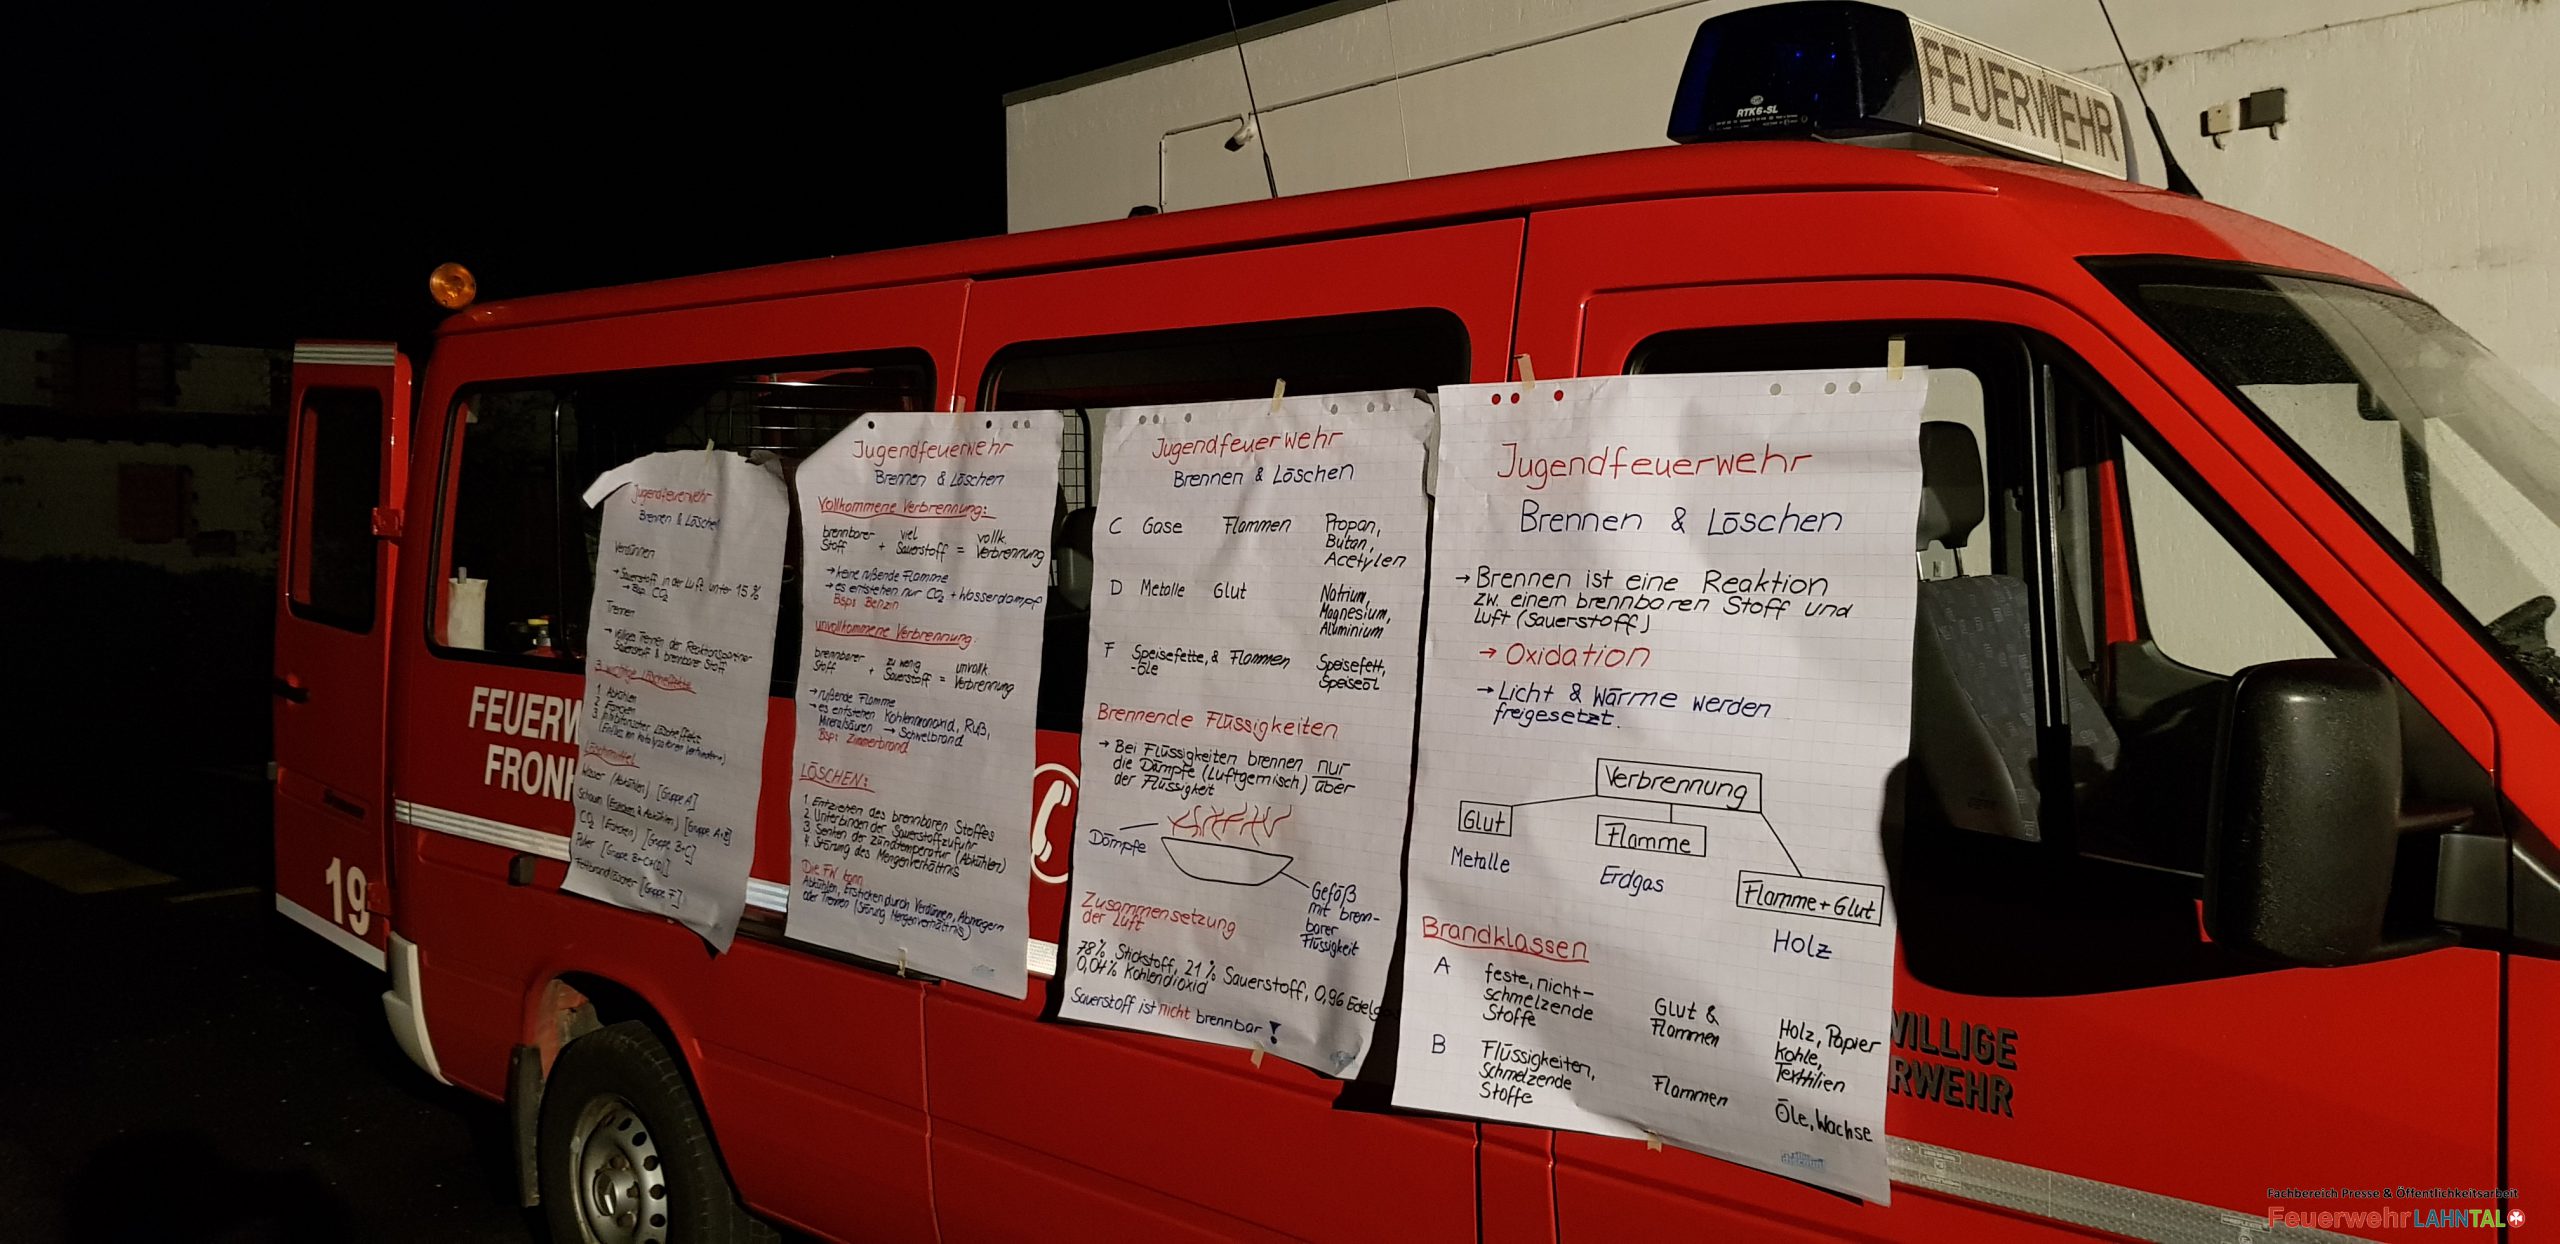 FEUERWEHR
RTK6-SL
Jugendfeuerwehr
Brennen & Löschen
Verdünnen
→ Sauerstoff in der Luft unter 15%
→ Bsp. CO₂
Trennen
→ völliges Trennen der Reaktionspartner
Sauerstoff & brennbarer Stoff
3 wichtige Löscheffekte
1. Abkühlen
2. Ersticken
3. Inhibitorischer Löscheffekt
Löschmittel
Wasser (Abkühlen) [Gruppe A]
Schaum (Ersticken & Abkühlen) [Gruppe A+B]
CO₂ (Ersticken) [Gruppe B+C]
Pulver [Gruppe B+C+(D)]
Fettbrandlöscher [Gruppe F]
Jugendfeuerwehr
Brennen & Löschen
Vollkommene Verbrennung:
brennbarer viel vollk.
Stoff + Sauerstoff = Verbrennung
→ keine rußende Flamme
→ es entstehen nur CO₂ + Wasserdampf
Bsp: Benzin
unvollkommene Verbrennung:
brennbarer zu wenig unvollk.
Stoff + Sauerstoff = Verbrennung
→ rußende Flamme
→ es entstehen Kohlenmonoxid, Ruß,
Mineralsäuren → Schwelbrand
Bsp: Zimmerbrand
LÖSCHEN:
1. Entziehen des brennbaren Stoffes
2. Unterbinden der Sauerstoffzufuhr
3. Senken der Zündtemperatur (Abkühlen)
4. Störung des Mengenverhältnis
Die FW kann
Abkühlen, Ersticken durch Verdünnen, Abmagern
oder Trennen (Störung Mengenverhältnis)
Jugendfeuerwehr
Brennen & Löschen
C Gase Flammen Propan,
Butan,
Acetylen
D Metalle Glut Natrium,
Magnesium,
Aluminium
F Speisefette, & Flammen Speisefett,
-öle Speiseöl
Brennende Flüssigkeiten
→ Bei Flüssigkeiten brennen nur
die Dämpfe (Luftgemisch) über
der Flüssigkeit
Dämpfe
Gefäß
mit brenn-
barer
Flüssigkeit
Zusammensetzung
der Luft
78% Stickstoff, 21% Sauerstoff, 0,96 Edelg
0,04% Kohlendioxid
Sauerstoff ist nicht brennbar!
Jugendfeuerwehr
Brennen & Löschen
→ Brennen ist eine Reaktion
zw. einem brennbaren Stoff und
Luft (Sauerstoff)
→ Oxidation
→ Licht & Wärme werden
freigesetzt.
Verbrennung
Glut
Flamme
Flamme+Glut
Metalle
Erdgas
Holz
Brandklassen
A feste, nicht- Glut & Holz, Papier
schmelzende Flammen Kohle,
Stoffe Texttilien
B Flüssigkeiten, Flammen Öle, Wachse
schmelzende
Stoffe
FEUERW
FRONH
19
WILLIGE
RWEHR
Fachbereich Presse & Öffentlichkeitsarbeit
Feuerwehr LAHNTAL